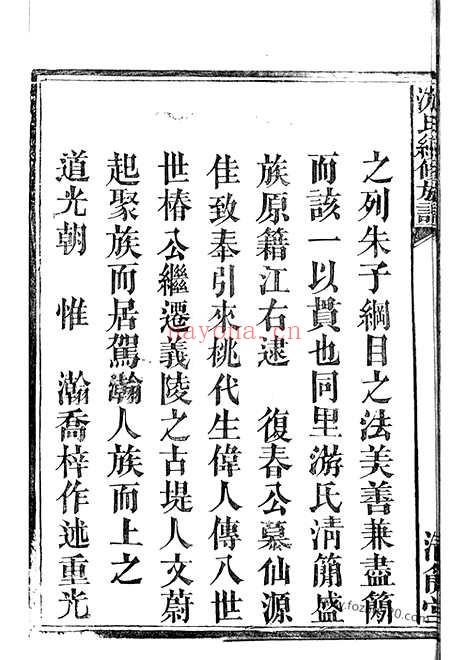 游氏續修族譜
之列朱子綱目之法美善兼盡簡
而該一以貫也同里游氏清簡盛
族原籍江右逮 復春公慕仙源
佳致奉引來桃代生偉人傳八世
世椿公繼遷義陵之古堤人文蔚
起聚族而居駕瀚人族而上之
道光朝 惟 瀚喬梓作述重光
nayona.cn